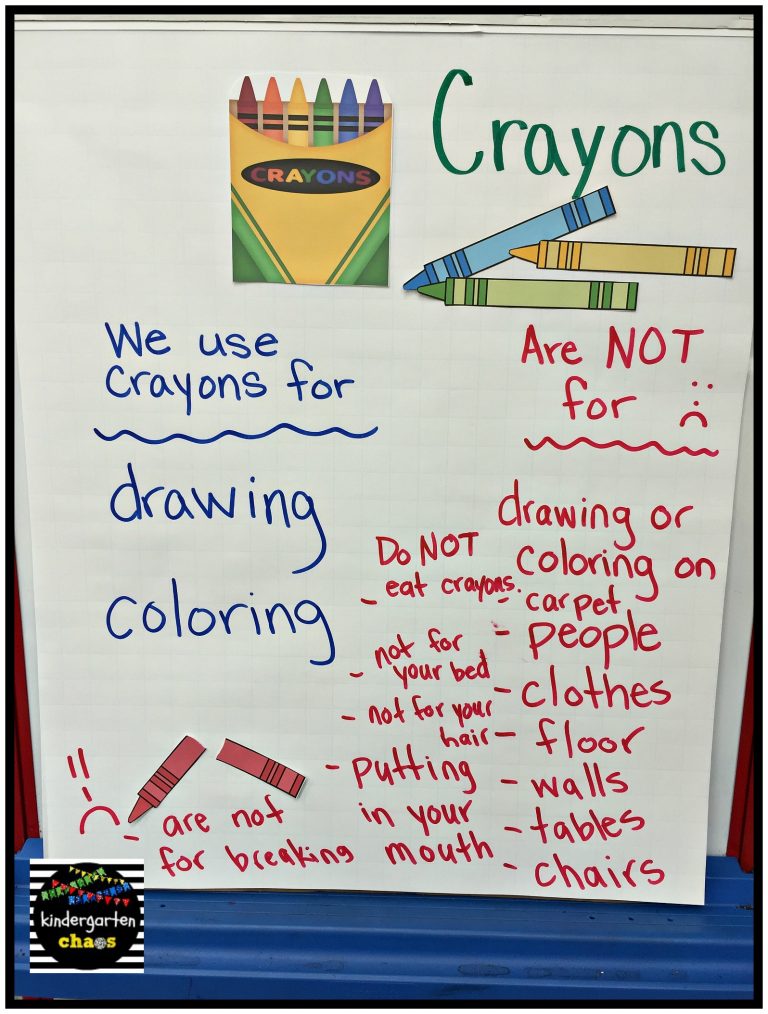 CRAYONS
Crayons
We use
Crayons for
drawing
coloring
Are NOT
for
drawing or
coloring on
- carpet
- people
- clothes
- floor
- walls
- tables
- chairs
Do NOT
- eat crayons.
- not for
your bed
- not for your
hair
- putting
in your
mouth
- are not
for breaking
kindergarten
chaos